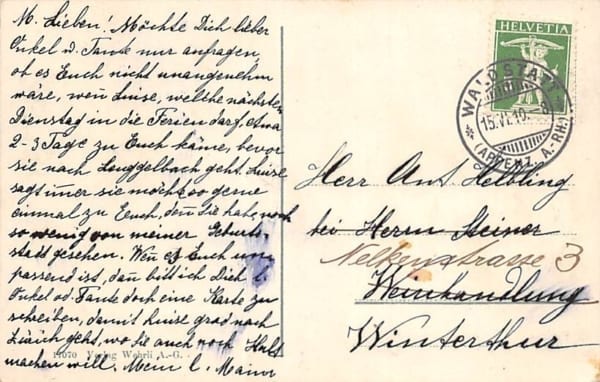 M. Lieben! Möchte Dich lieber
Onkel u. Tante nur anfragen,
ob es Euch nicht unangenehm
wäre, wen Luise, welche nächsten
Dienstag in die Ferien darf, etwa
2-3 Tage zu Euch käme, bevor
sie nach Lenggelbach geht. Luise
sagt immer sie möchte so gerne
einmal zu Euch, den Sie habe noch
so wenig von meiner Geburts-
stadt gesehen. Wen es Euch un-
passend ist, dan bitt ich Dich l.
Onkel od. Tante doch eine Karte zu
schreiben, damit Luise grad nach
Zürich geht, wo sie auch noch Halt
machen will. Mein l. Mann
11070 Verlag Wehrli A.-G.
HELVETIA
WALDSTATT
15.VI.10.
(APPENZ. A.-RH.)
Herr Ant Helbling
bei Herrn Steiner
Nelkenstrasse 3
Weinhandlung
Winterthur